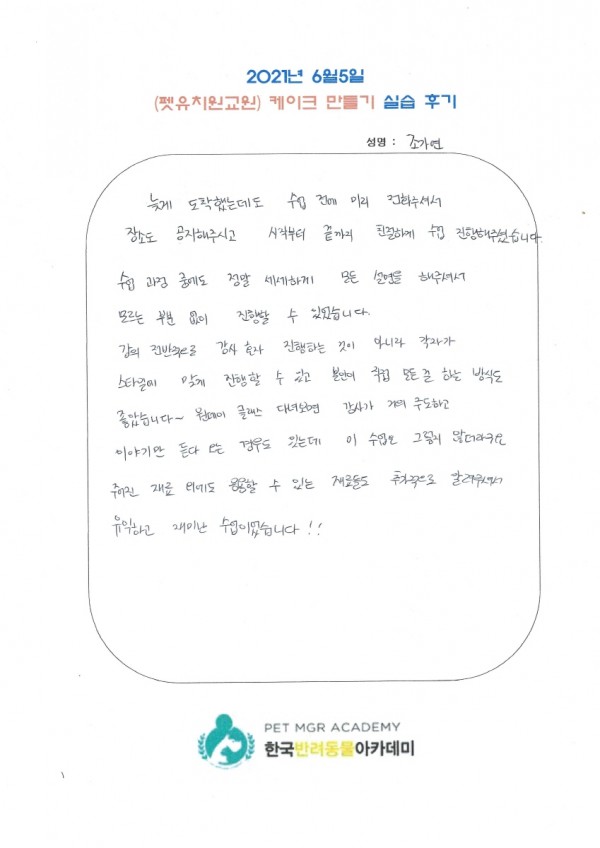 2021년 6월5일
(펫유치원교원) 케이크 만들기 실습 후기
성명 : 조가연
늦게 도착했는데도 수업 전에 미리 전화주셔서
장소도 공지해주시고 시작부터 끝까지 친절하게 수업 진행해주셨습니다.
수업 과정 중에도 정말 세세하게 모든 설명을 해주셔서
모르는 부분 없이 진행할 수 있었습니다.
강의 전반적으로 강사 혼자 진행하는 것이 아니라 각자가
스타일에 맞게 진행할 수 있고 본인이 직접 모든 걸 하는 방식도
좋았습니다~ 원데이 클래스 다녀보면 강사가 거의 주도하고
이야기만 듣다 오는 경우도 있는데 이 수업은 그렇지 않더라구요
주어진 재료 외에도 활용할 수 있는 재료들도 추가적으로 알려주셔서
유익하고 재미난 수업이었습니다!!
PET MGR ACADEMY
한국반려동물아카데미